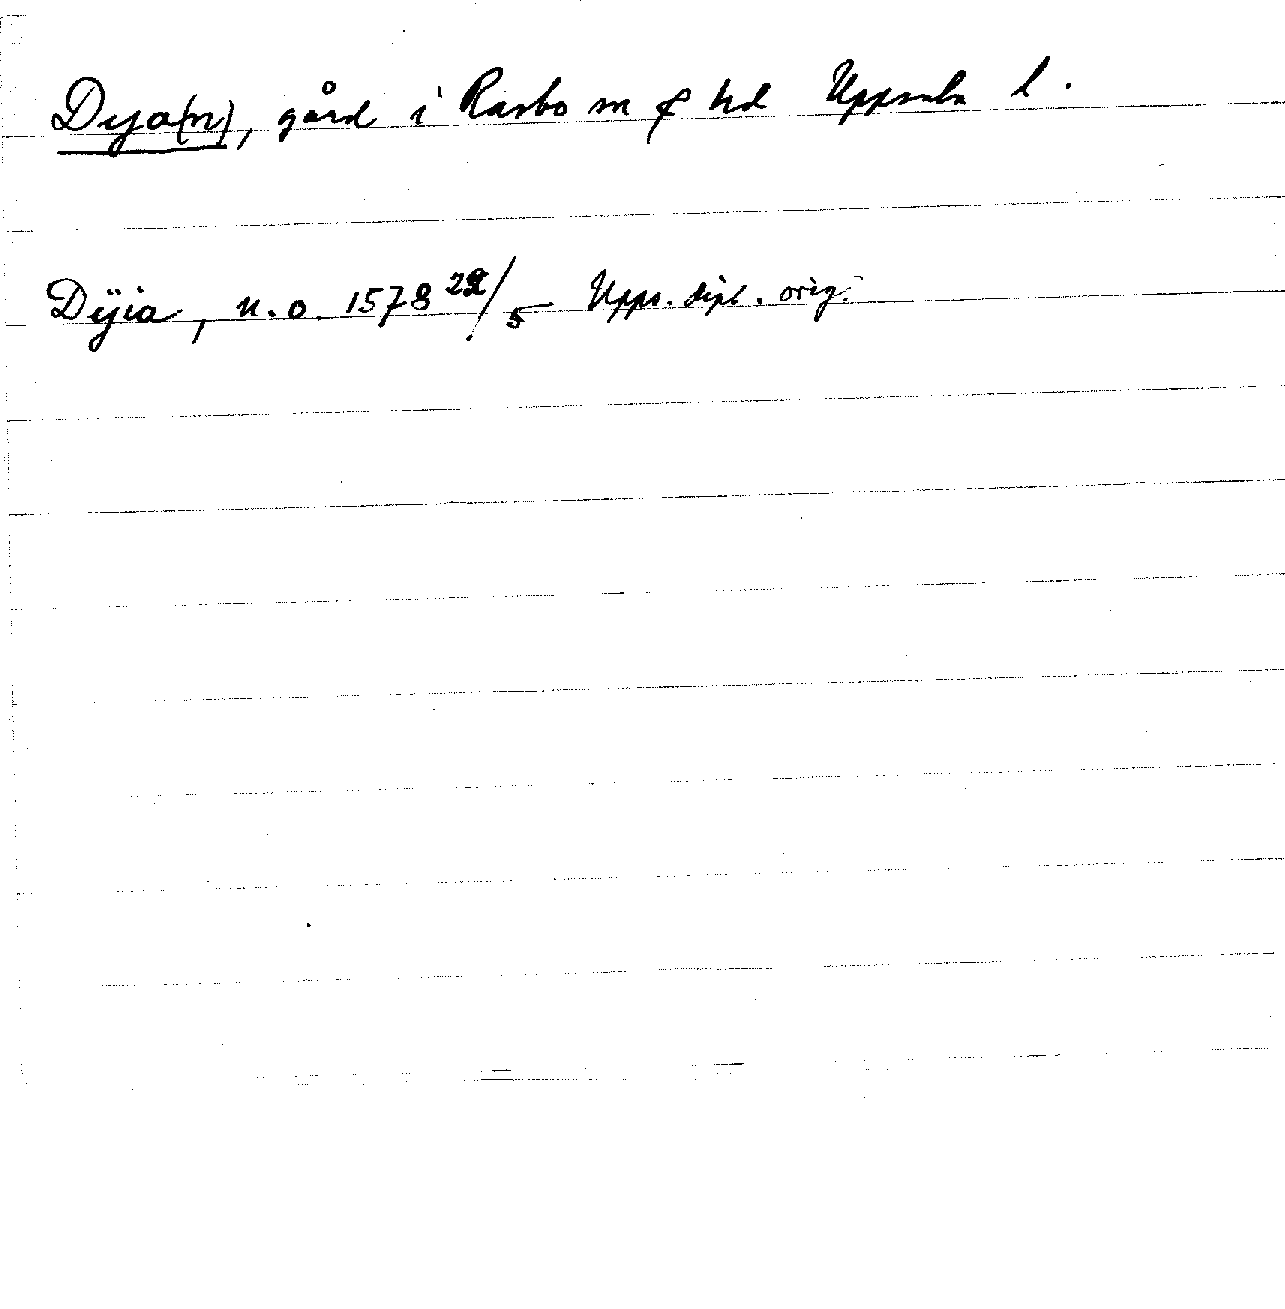 Dya(n), gård i Rasbo sn & hd Uppsala l.
Dÿia, n. o. 1578 22/5 Upps. dipl. orig.